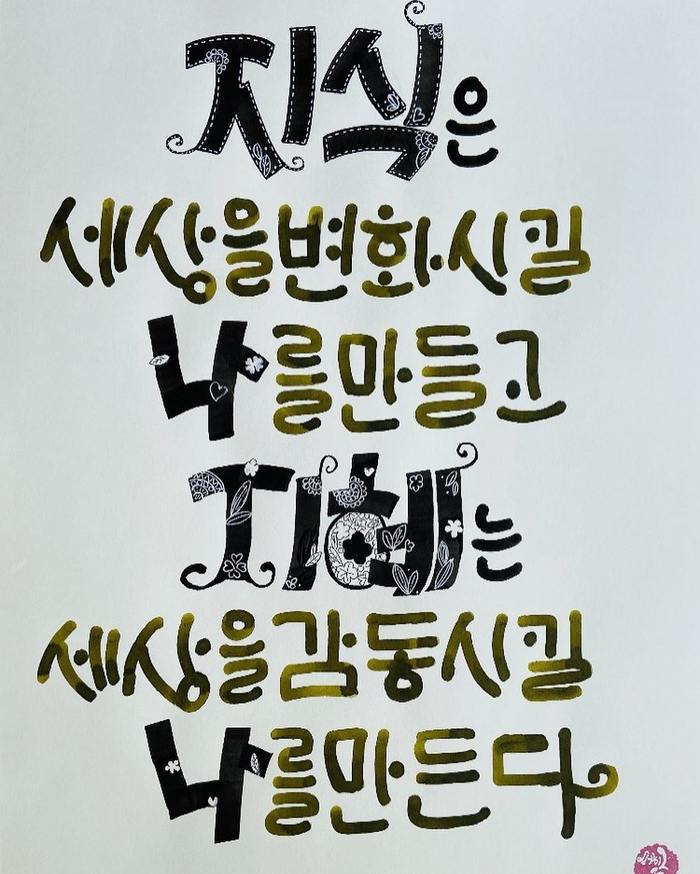 지식은
세상을변화시킬
나를만들고
지혜는
세상을감동시킬
나를만든다